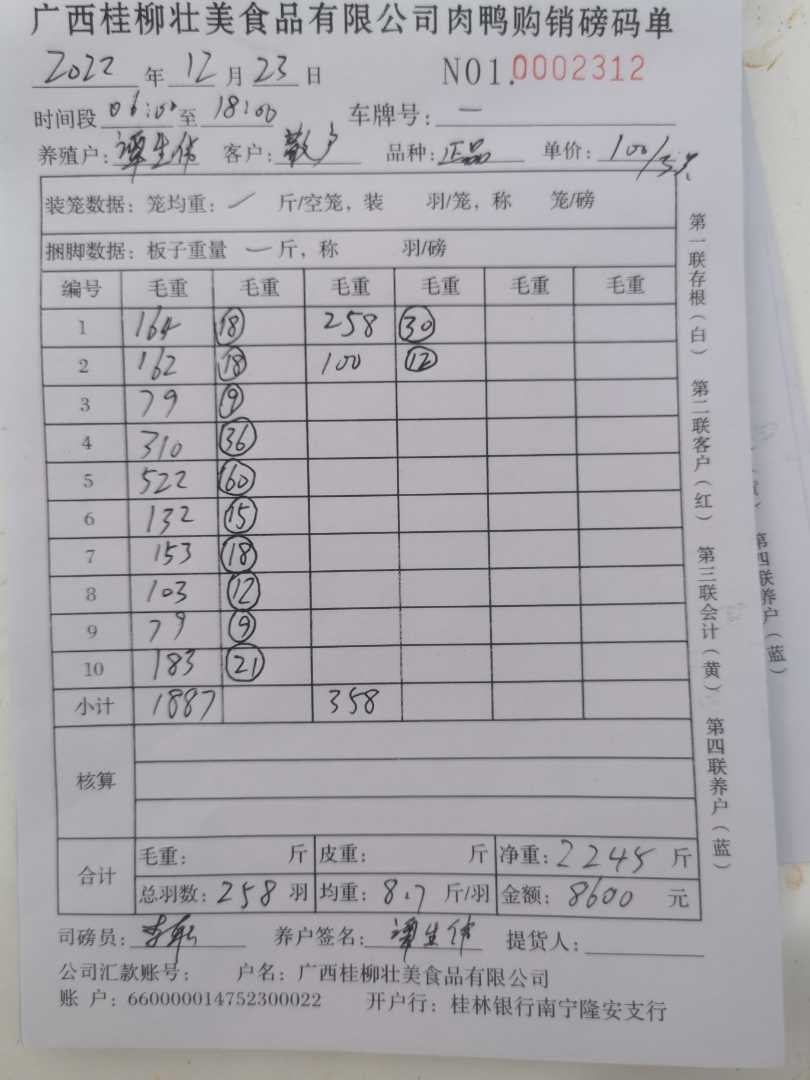 广西桂柳壮美食品有限公司肉鸭购销磅码单
2022 年 12 月 23 日 NO1.0002312
时间段 06:00 至 18:00 车牌号: 一
养殖户: 谭生伟 客户: 散户 品种: 正品 单价: 100/3只
装笼数据: 笼均重: / 斤/空笼, 装 羽/笼, 称 笼/磅
捆脚数据: 板子重量 一 斤, 称 羽/磅
编号 毛重 毛重 毛重 毛重 毛重 毛重
1 164 18 258 30
2 162 18 100 12
3 79 9
4 310 36
5 522 60
6 132 15
7 153 18
8 103 12
9 79 9
10 183 21
小计 1887 358
核算
合计 毛重: 斤 皮重: 斤 净重: 2245 斤
总羽数: 258 羽 均重: 8.7 斤/羽 金额: 8600 元
司磅员: 养户签名: 谭生伟 提货人:
公司汇款账号: 户名: 广西桂柳壮美食品有限公司
账 户: 660000014752300022 开户行: 桂林银行南宁隆安支行
第一联存根(白) 第二联客户(红) 第三联会计(黄) 第四联养户(蓝)
第四联养户(蓝)